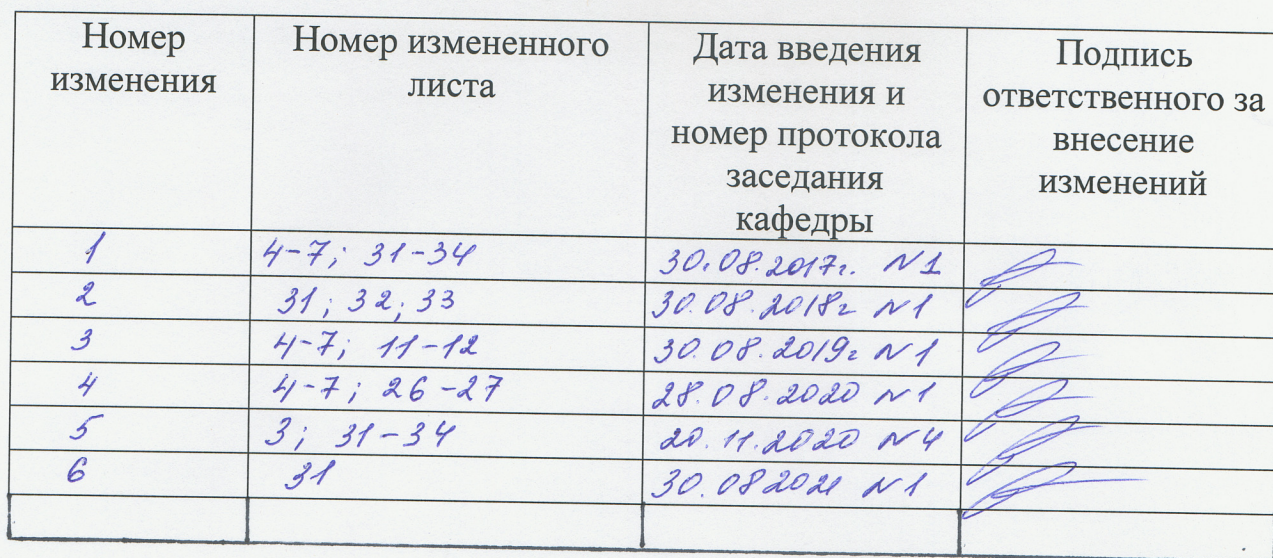 Номер изменения
Номер измененного листа
Дата введения изменения и номер протокола заседания кафедры
Подпись ответственного за внесение изменений
1 4-7; 31-34 30.08.2017г. N1
2 31; 32; 33 30.08.2018г N1
3 4-7; 11-12 30.08.2019г N1
4 4-7; 26-27 28.08.2020 N1
5 3; 31-34 20.11.2020 N4
6 31 30.082021 N1